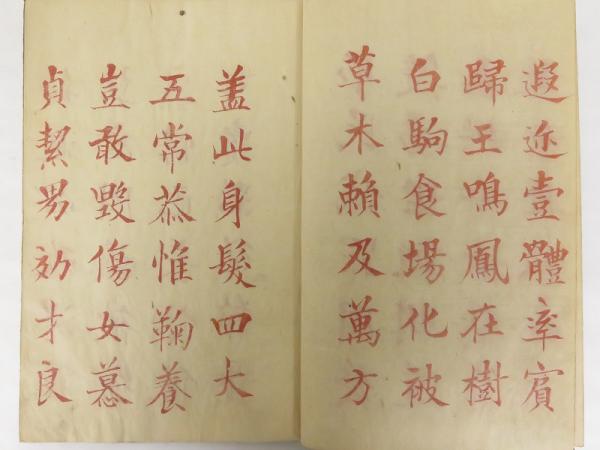 遐近壹體率賓
歸王鳴鳳在樹
白駒食場化被
草木賴及萬方
盖此身髮四大
五常恭惟鞠養
豈敢毀傷女慕
貞絜男効才良